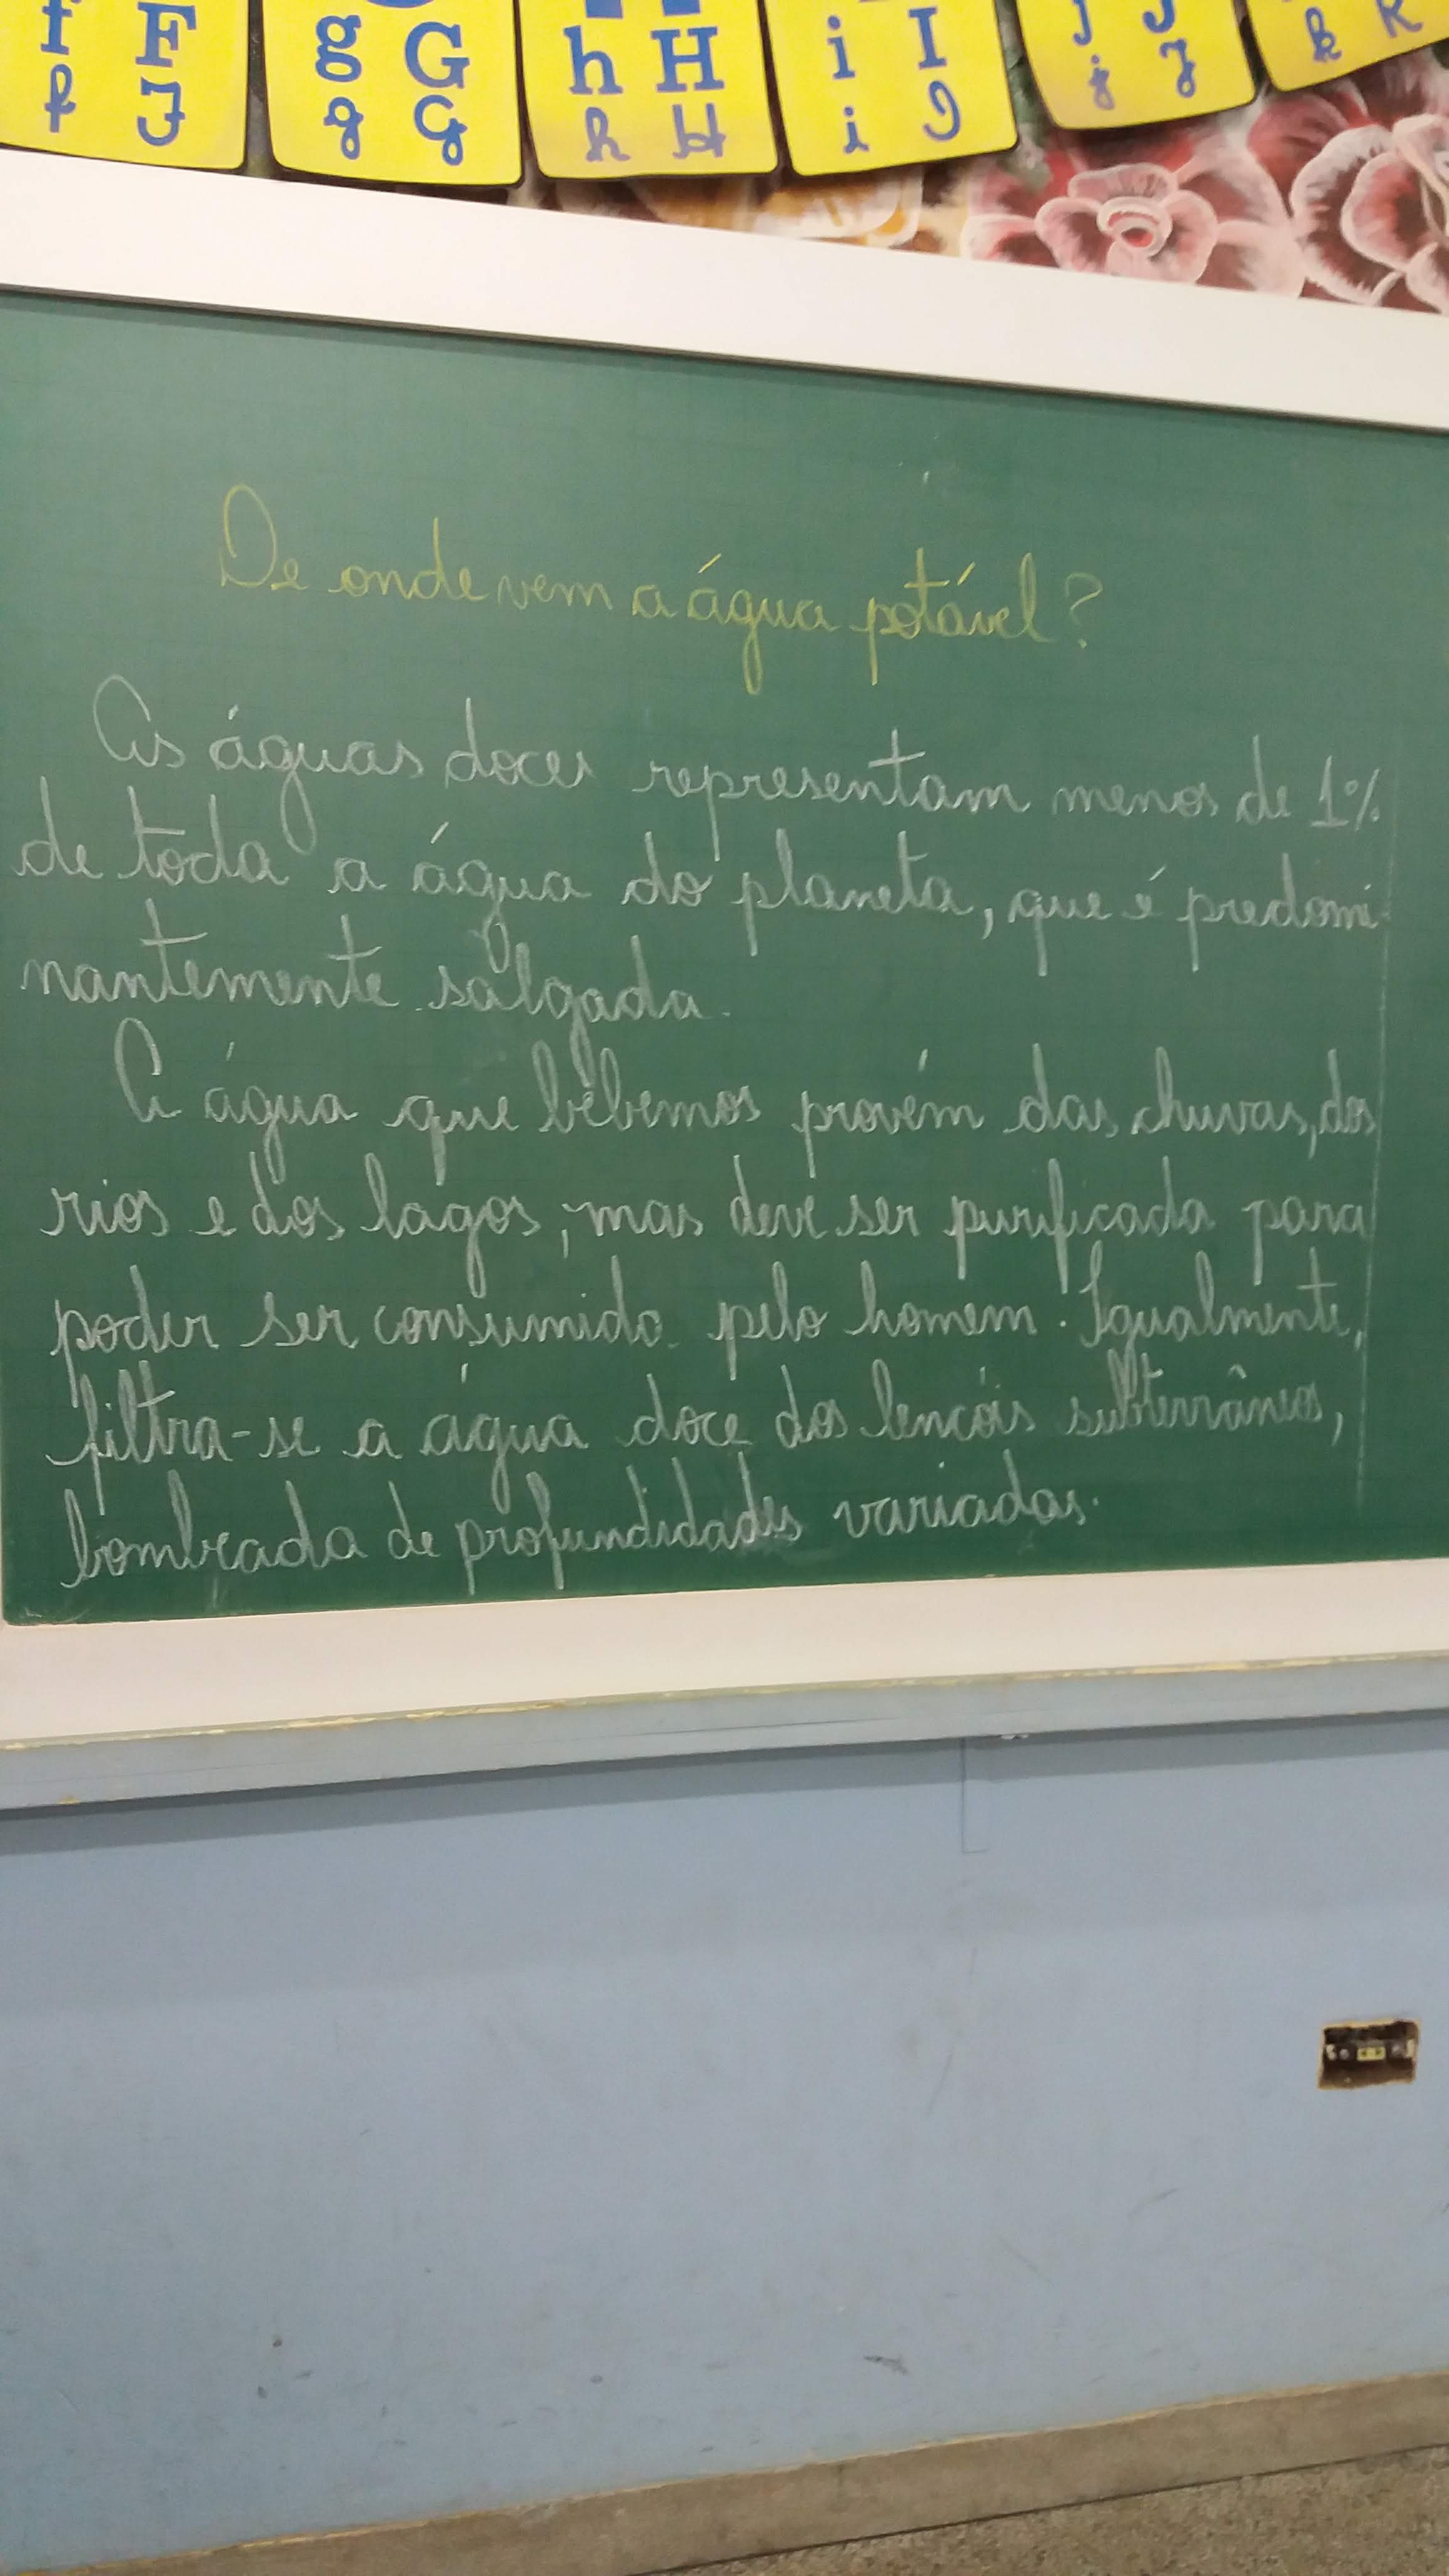 f F g G h H i I j J
f F g G h H i I j J k K
De onde vem a água potável?
As águas doces representam menos de 1%
de toda a água do planeta, que é predomi-
nantemente salgada.
A água que bebemos provém das chuvas, dos
rios e dos lagos, mas deve ser purificada para
poder ser consumida pelo homem. Igualmente,
filtra-se a água doce dos lencóis subterrâneos,
bombeada de profundidades variadas.